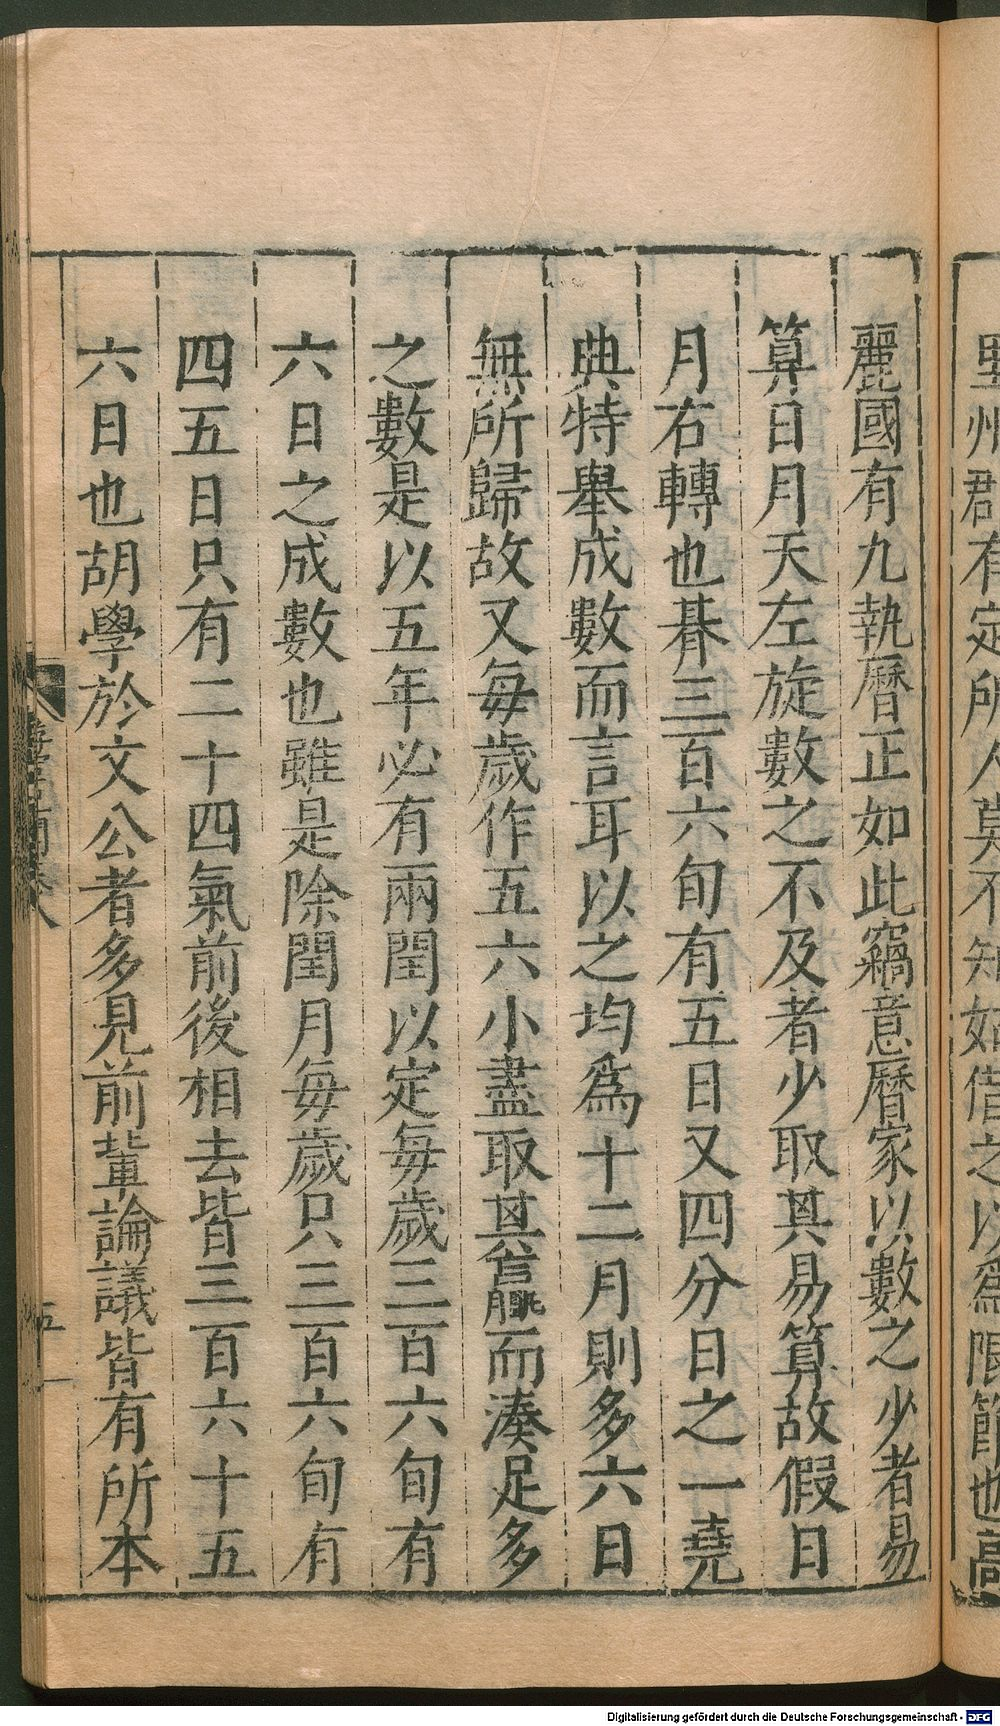 里州郡有定所人莫不知如借之以爲限節也高
麗國有九執曆正如此竊意曆家以數之少者易
算日月天左旋數之不及者少取其易算故假日
月右轉也朞三百六旬有五日又四分日之一堯
典特舉成數而言耳以之均爲十二月則多六日
無所歸故又每歲作五六小盡取其朓而湊足多
之數是以五年必有兩閏以定每歲三百六旬有
六日之成數也雖是除閏月每歲只三百六旬有
四五日只有二十四氣前後相去皆三百六十五
六日也胡學於文公者多見前輩論議皆有所本
卷八
五
Digitalisierung gefördert durch die Deutsche Forschungsgemeinschaft - DFG